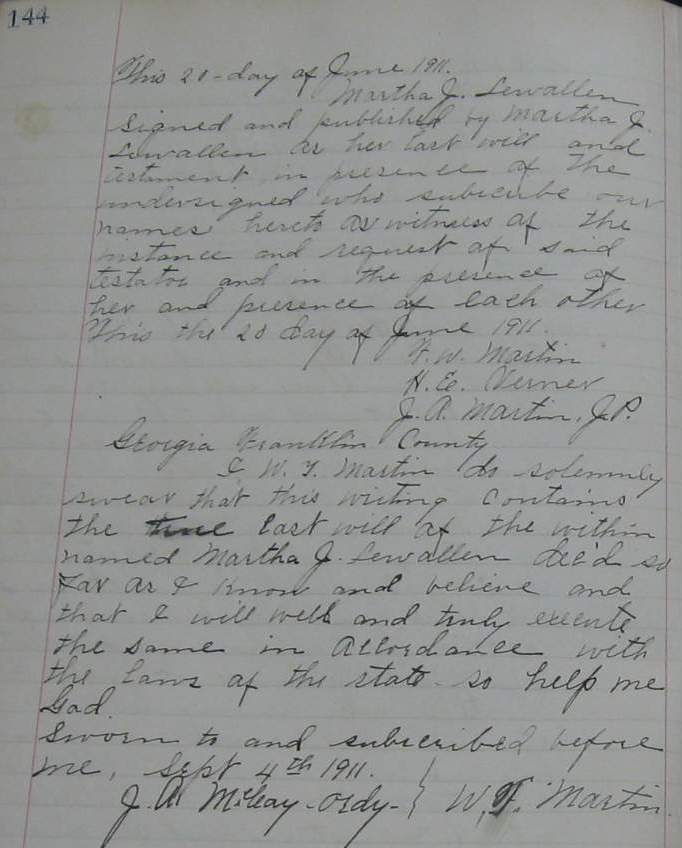 144
This 20-day of June 1911.
Martha J. Lewallen
Signed and published by Martha J.
Lewallen as her last will and
testament in presence of the
undersigned who subscribe our
names hereto as witness at the
instance and request of said
testator and in the presence of
her and presence of each other
This the 20 day of June 1911.
F. W. Martin
H. E. Verner
J. A. Martin, J.P.
Georgia Franklin County
I W. T. Martin do solemnly
swear that this writing contains
the true last will of the within
named Martha J. Lewallen dec'd so
far as I know and believe and
that I will well and truly execute
the same in accordance with
the laws of the state - so help me
God.
Sworn to and subscribed before
me, Sept 4th 1911.
J. A. - Ordy - } W. T. Martin.